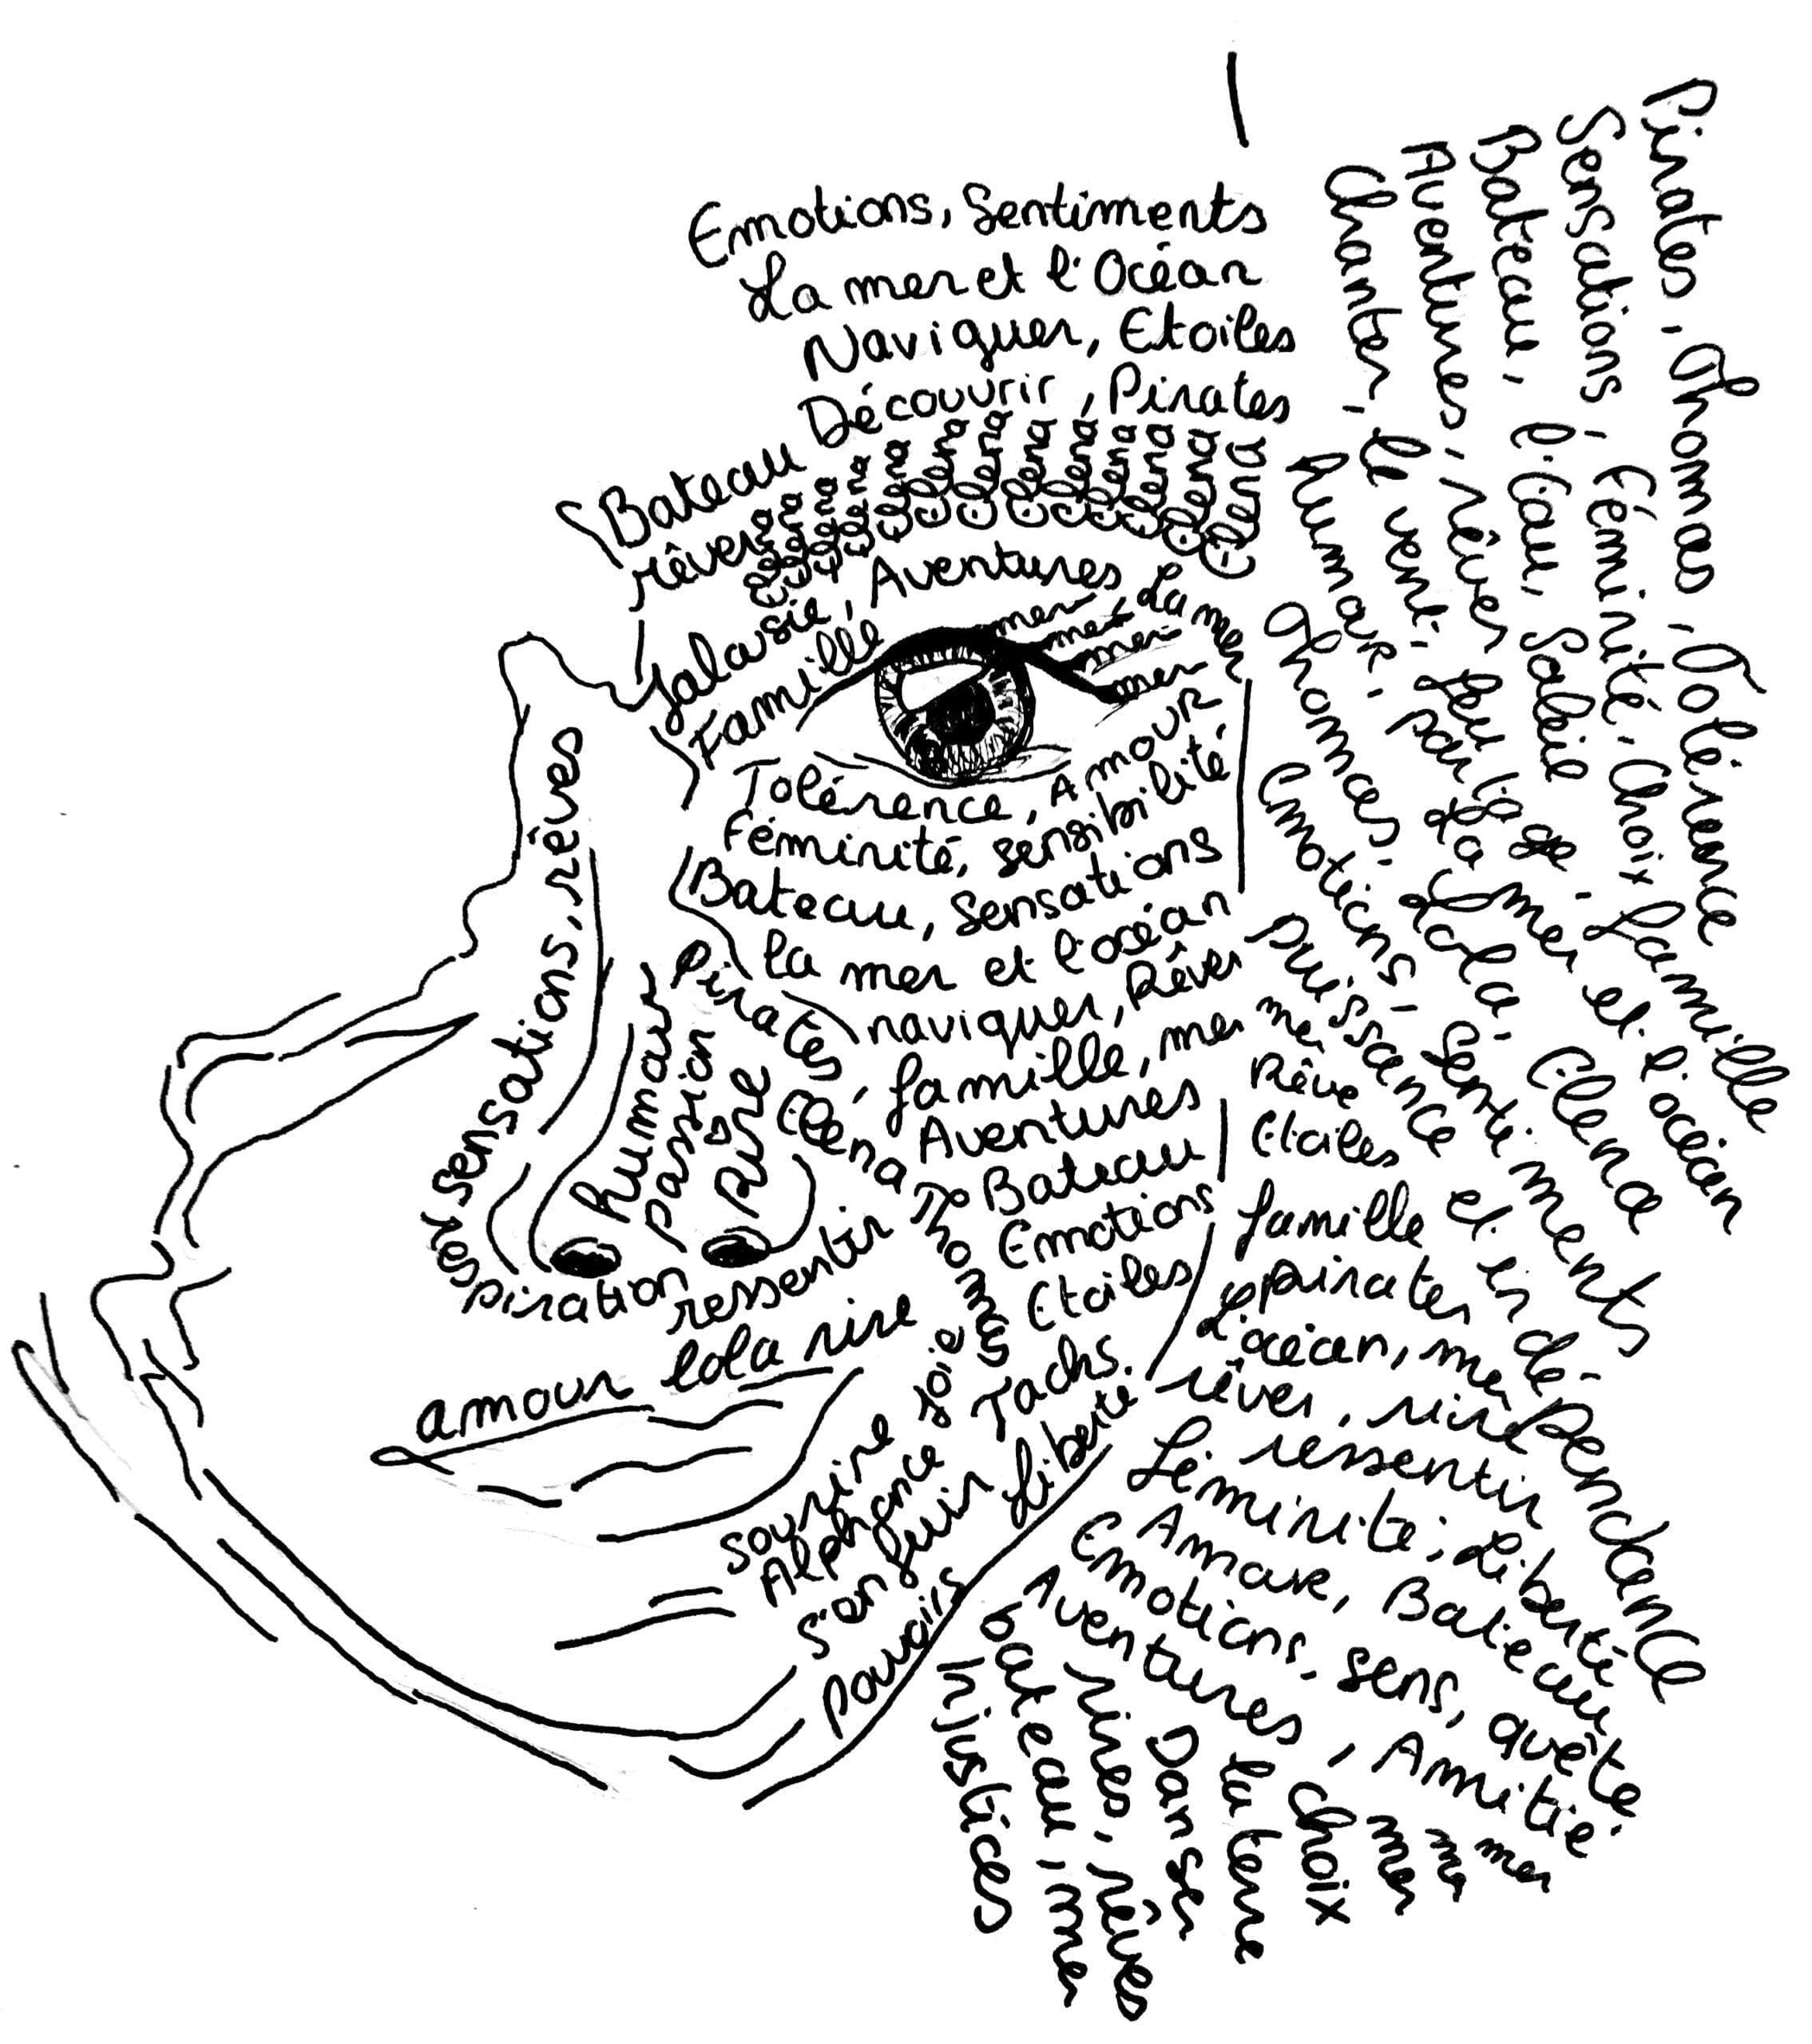 Emotions, Sentiments
La mer et l'Océan
Naviguer, Etoiles
Découvrir, Pirates
Bateau
rêver
Jalousie, Aventures, La mer
Famille
mer
mer
mer
mer
Tolérence, Amour
Féminité, sensibilité
Bateau, Sensations
la mer et l'océan
naviguer, Rêver
famille, mer
Aventures
Bateau
Emotions
Etoiles
Tachs.
Pirates, Eléna Thomas
sensations, rêves
respiration
humour
passion
ressentir
amour lola rire
joie
sourire
Alphonce
s'enfuir liberté
pouvoirs
Pirates, Thomas, Tolérence
Sensations, féminité, Choix famille
Bateau, l'eau, Soleil
Aventures, rêver
la mer et l'océan
Chanter, le vent,
humour,
Thomas, Lola, Elena
Emotions, Sentiments
Puissance et indépendance
mer
Rêve
Etoiles
famille
pirates
L'océan, mer
rêver, rire
ressentir
féminité, Liberté
Amour, Bateau
Emotions, sens, quête
Aventures, Amitié
mer
mer
mer
choix
la terre
Danser
rires, rêves
bateau, mer
injustices